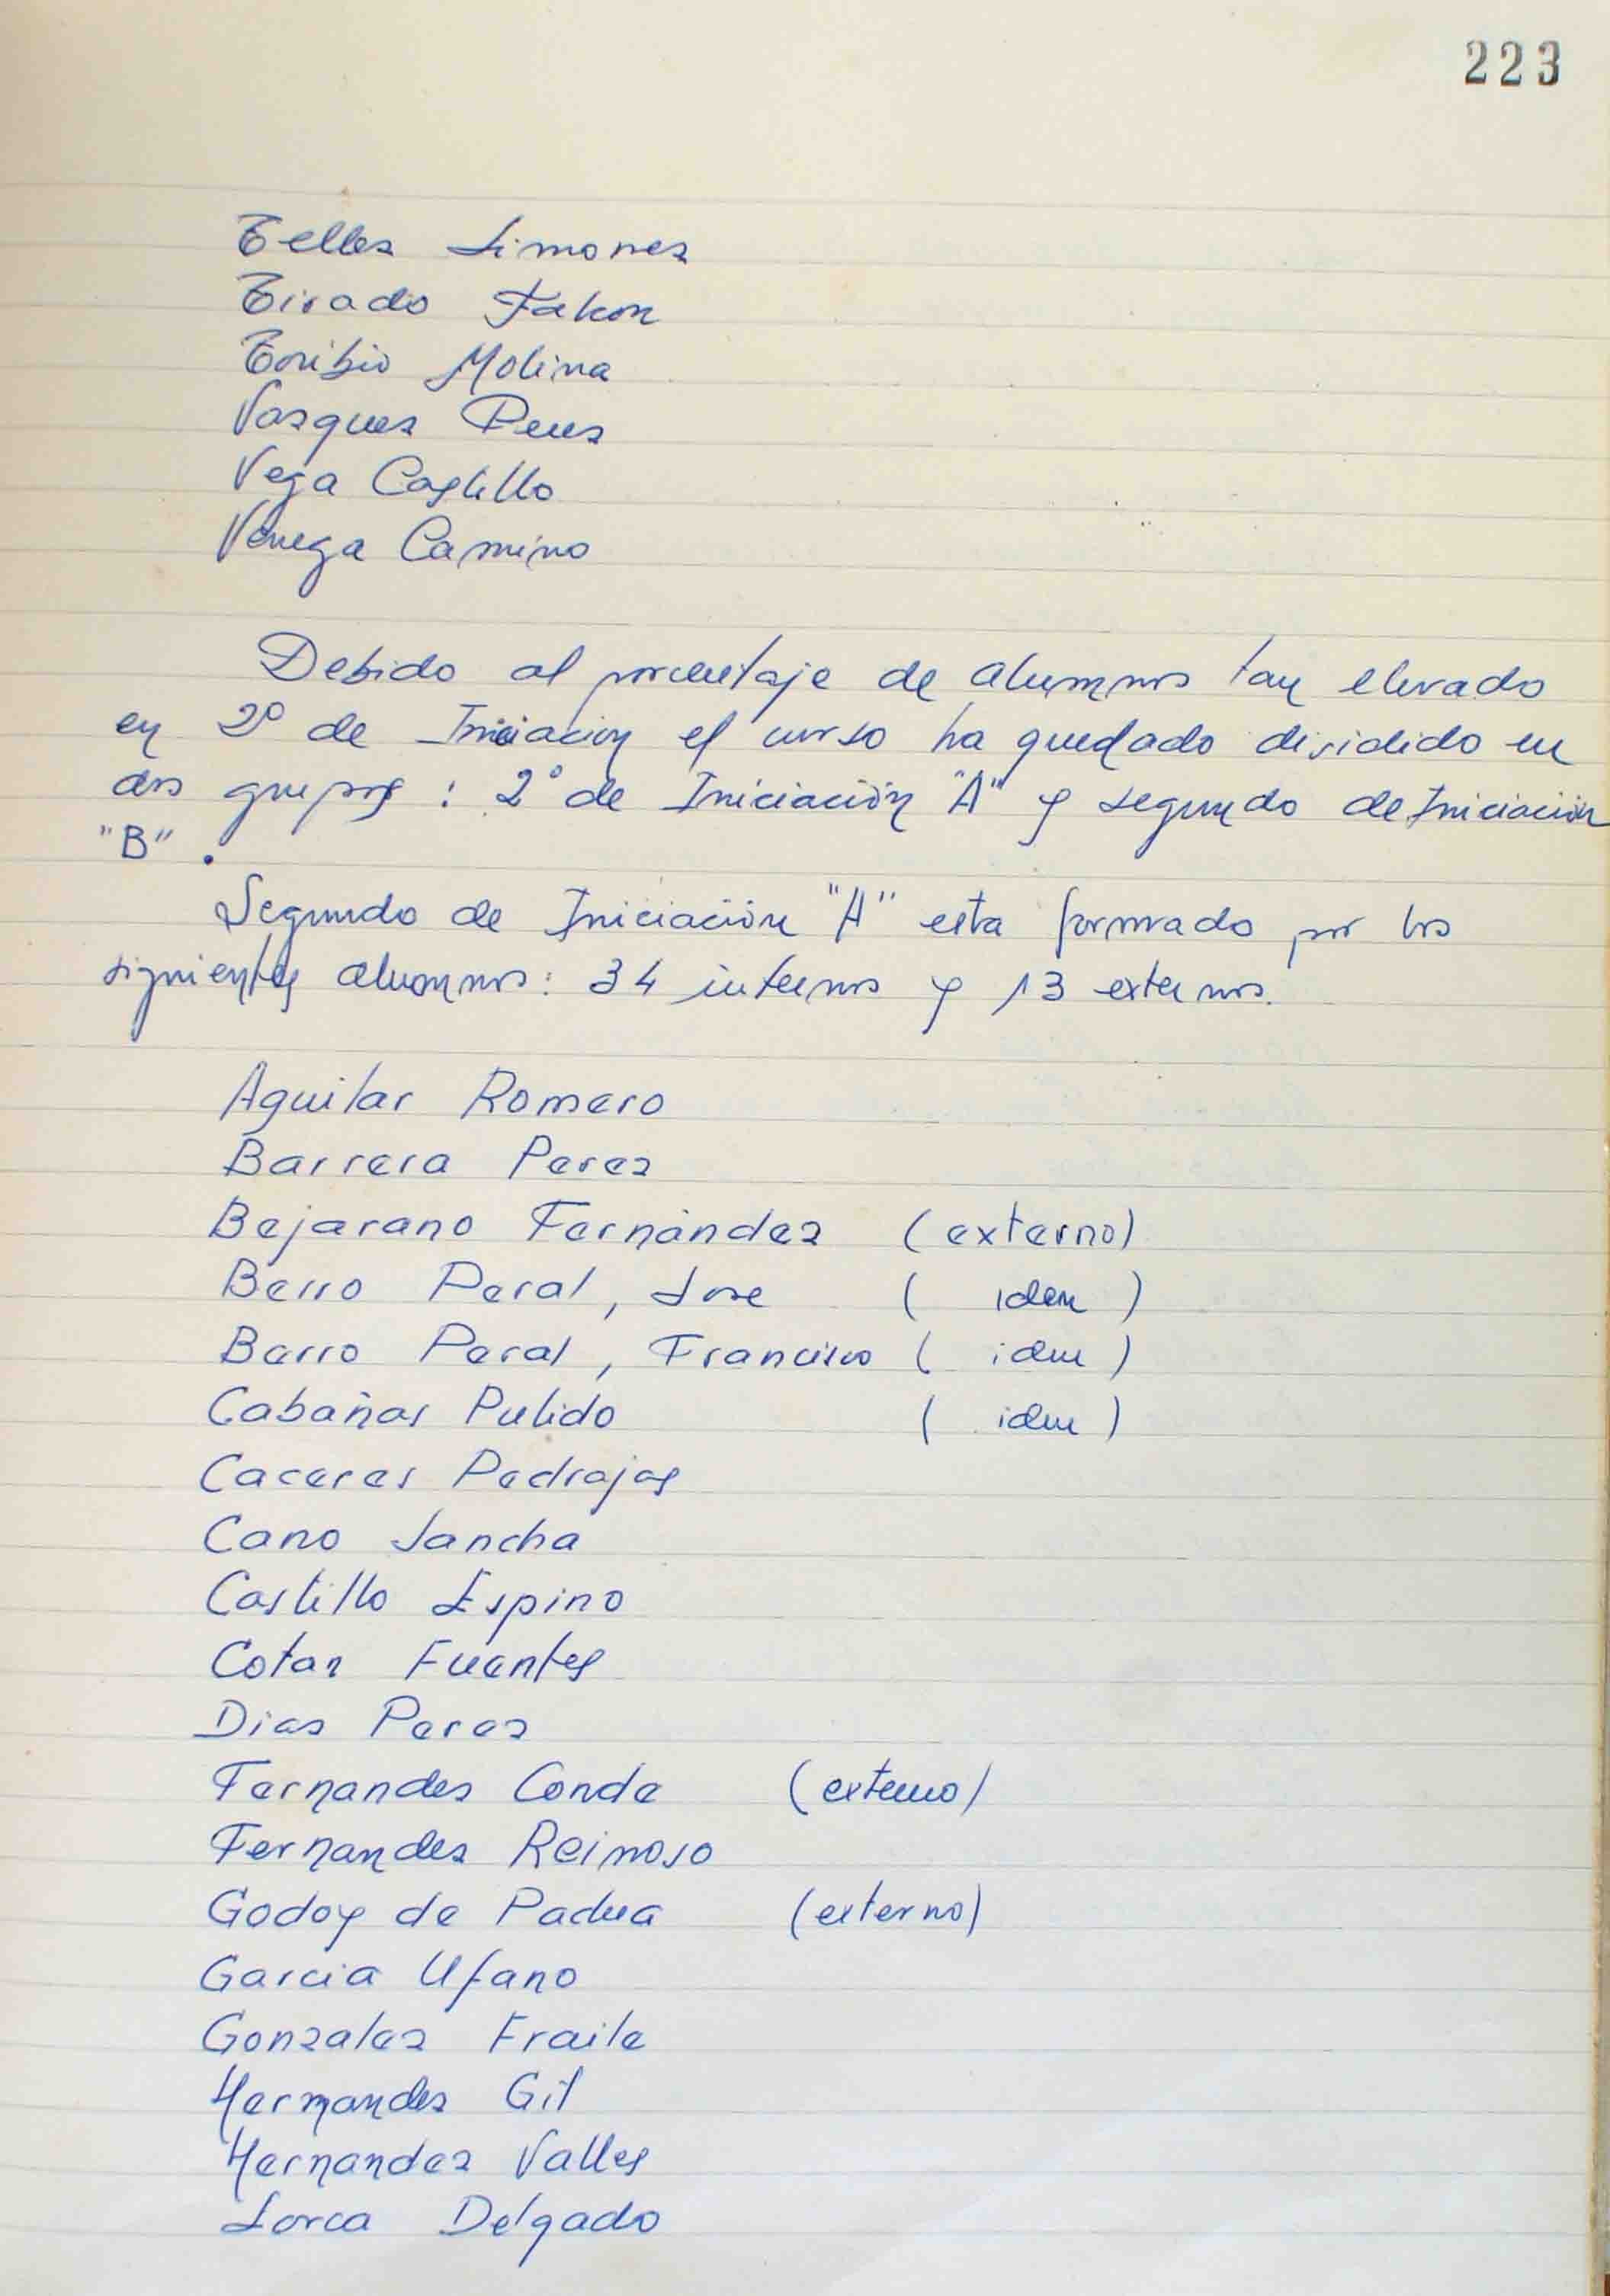 223
Tellez Simonez
Tirado Falcon
Toribio Molina
Vazquez Perez
Vega Castillo
Venega Camino
Debido al porcentaje de alumnos tan elevado
en 2º de Iniciacion el curso ha quedado dividido en
dos grupos : 2º de Iniciación "A" y segundo de Iniciación
"B" .
Segundo de Iniciación "A" esta formado por los
siguientes alumnos: 34 internos y 13 externos.
Aguilar Romero
Barrera Perez
Bejarano Fernández (externo)
Berro Peral, Jose ( idem )
Berro Peral, Francisco ( idem )
Cabañas Pulido ( idem )
Caceres Pedrajas
Cano Sancha
Castillo Espino
Cotan Fuentes
Diaz Perez
Fernandez Conde (externo)
Fernandez Reinoso
Godoy de Padua (externo)
Garcia Ufano
Gonzalez Fraile
Hernandez Gil
Hernandez Valles
Lorca Delgado